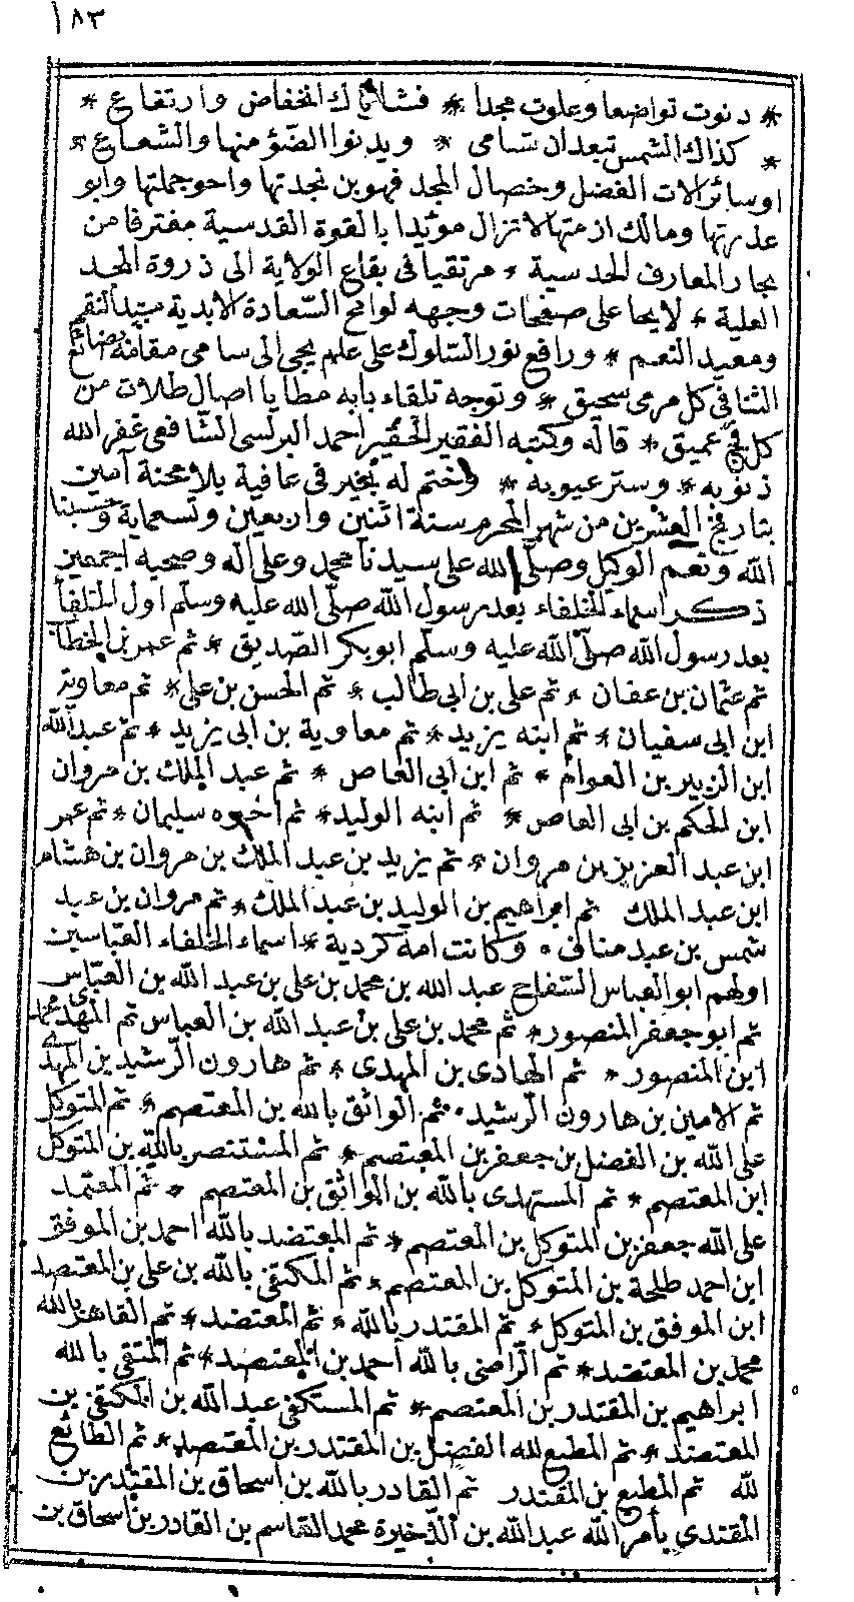 ١٨٣
* دنوت تواضعا وعلوت مجدا * فشانك انخفاض وارتفاع *
* كذاك الشمس تبعد ان تسامى * ويدنوا الضّؤ منها والشعاع *
اوسائر الات الفضل وخصال المجد فهو بن نجدتها واحو جملتها وابو
عذرتها ومالك ازمتها لا تزال مويدا بالقوة القدسية مغترفا من
بحار المعارف الحدسية * مرتقيا فى بقاع الولاية الى ذروة المجد
العلية * لايحا على صفحات وجهه لوامح السّعادة الابدية مبيد النقم
ومعيد النعم * ورافع نور السّلوك على علم يجى الى سامى مقامه بضائع
الثنا فى كل مرمى سحيق * وتوجه تلقاء بابه مطايا اصال طلات من
كل فج عميق * قاله وكتبه الفقير الحقير احمد البرلسى الشّافعى غفر الله
ذنوبه * وستر عيوبه * وختم له بخير فى عافية بلا محنة آمين
بتاريخ العشرين من شهر المحرم سنة اثنين واربعين وتسعماية وحسبنا
الله ونعم الوكيل وصلى الله على سيدنا محمد وعلى اله وصحبه اجمعين
ذكر اسماء الخلفاء بعد رسول الله صلّى الله عليه وسلم اول الخلفا
بعد رسول الله صلّى الله عليه وسلم ابو بكر الصّديق * ثم عمر بن الخطاب
ثم عثمان بن عفان * ثم على بن ابى طالب * ثم الحسن بن على * ثم معاوية
ابن ابى سفيان * ثم ابنه يزيد * ثم معاوية بن ابى يزيد * ثم عبد الله
ابن الزبير بن العوام * ثم ابن ابى العاص * ثم عبد الملك بن مروان
ابن الحكم بن ابى العاص * ثم ابنه الوليد * ثم اخوه سليمان * ثم عمر
ابن عبد العزيز بن مروان * ثم يزيد بن عبد الملك بن مروان بن هشام
ابن عبد الملك ثم ابراهيم بن الوليد بن عبد الملك * ثم مروان بن عبد
شمس بن عبد مناف * وكانت امه كردية * اسماء الخلفاء العبّاسين
اولهم ابو العباس السّفاح عبد الله بن محمد بن على بن عبد الله بن العبّاس
ثم ابو جعفر المنصور * ثم محمد بن على بن عبد الله بن العباس ثم المهدى محمد
ابن المنصور * ثم الهادى بن المهدى * ثم هارون الرّشيد بن المهدى
ثم الامين بن هارون الرّشيد * ثم الواثق بالله بن المعتصم * ثم المتوكل
على الله بن الفضل بن جعفر بن المعتصم * ثم المستنصر بالله بن المتوكل
ابن المعتصم * ثم المستهدى بالله بن الواثق بن المعتصم * ثم المعتمد
على الله جعفر بن المتوكل بن المعتصم * ثم المعتضد بالله احمد بن الموفق
ابن احمد طلحة بن المتوكل بن المعتصم * ثم المكتفى بالله بن على بن المعتصد
ابن الموفق بن المتوكل * ثم المقتدر بالله * ثم المعتضد * ثم القاهر بالله
محمد بن المعتضد * ثم الرّاضى بالله أحمد بن المعتصد * ثم المتقى بالله
ابراهيم بن المقتدر بن المعتصم * ثم المستكفى عبد الله بن المكتفى بن
المعتضد * ثم المطيع لله الفضل بن المقتدر بن المعتصد * ثم الطائع
لله ثم المطيع بن المقتدر ثم القادر بالله بن اسحاق بن المقتدر بن
المقتدى بأمر الله عبد الله بن الذّخيرة محمد القاسم بن القادر بن اسحاق بن